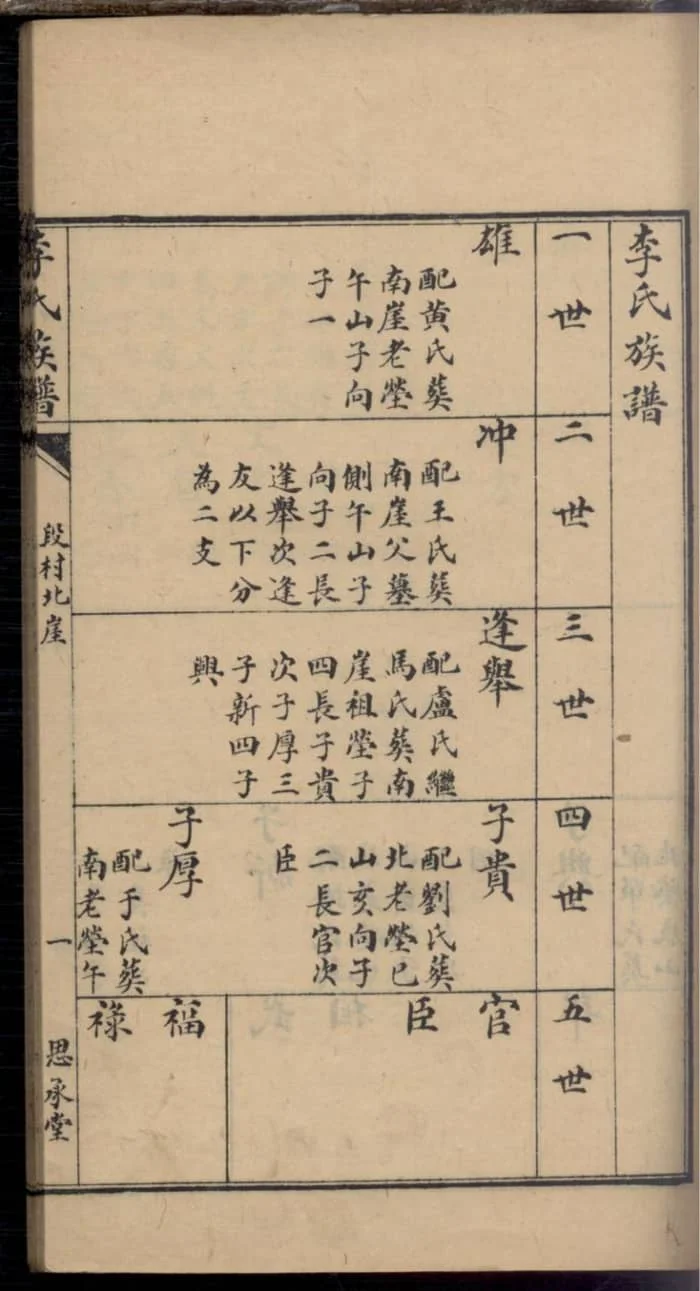 李氏族譜
一世
雄
配黃氏葬
南崖老塋
午山子向
子一
二世
冲
配王氏葬
南崖父墓
側午山子
向子二長
逢舉次逢
友以下分
為二支
三世
逢舉
配盧氏繼
馬氏葬南
崖祖塋子
四長子貴
次子厚三
子新四子
興
四世
子貴
配劉氏葬
北老塋巳
山亥向子
二長官次
臣
子厚
配于氏葬
南老塋午
五世
官
臣
福
祿
李氏族譜
段村北崖
一
思承堂